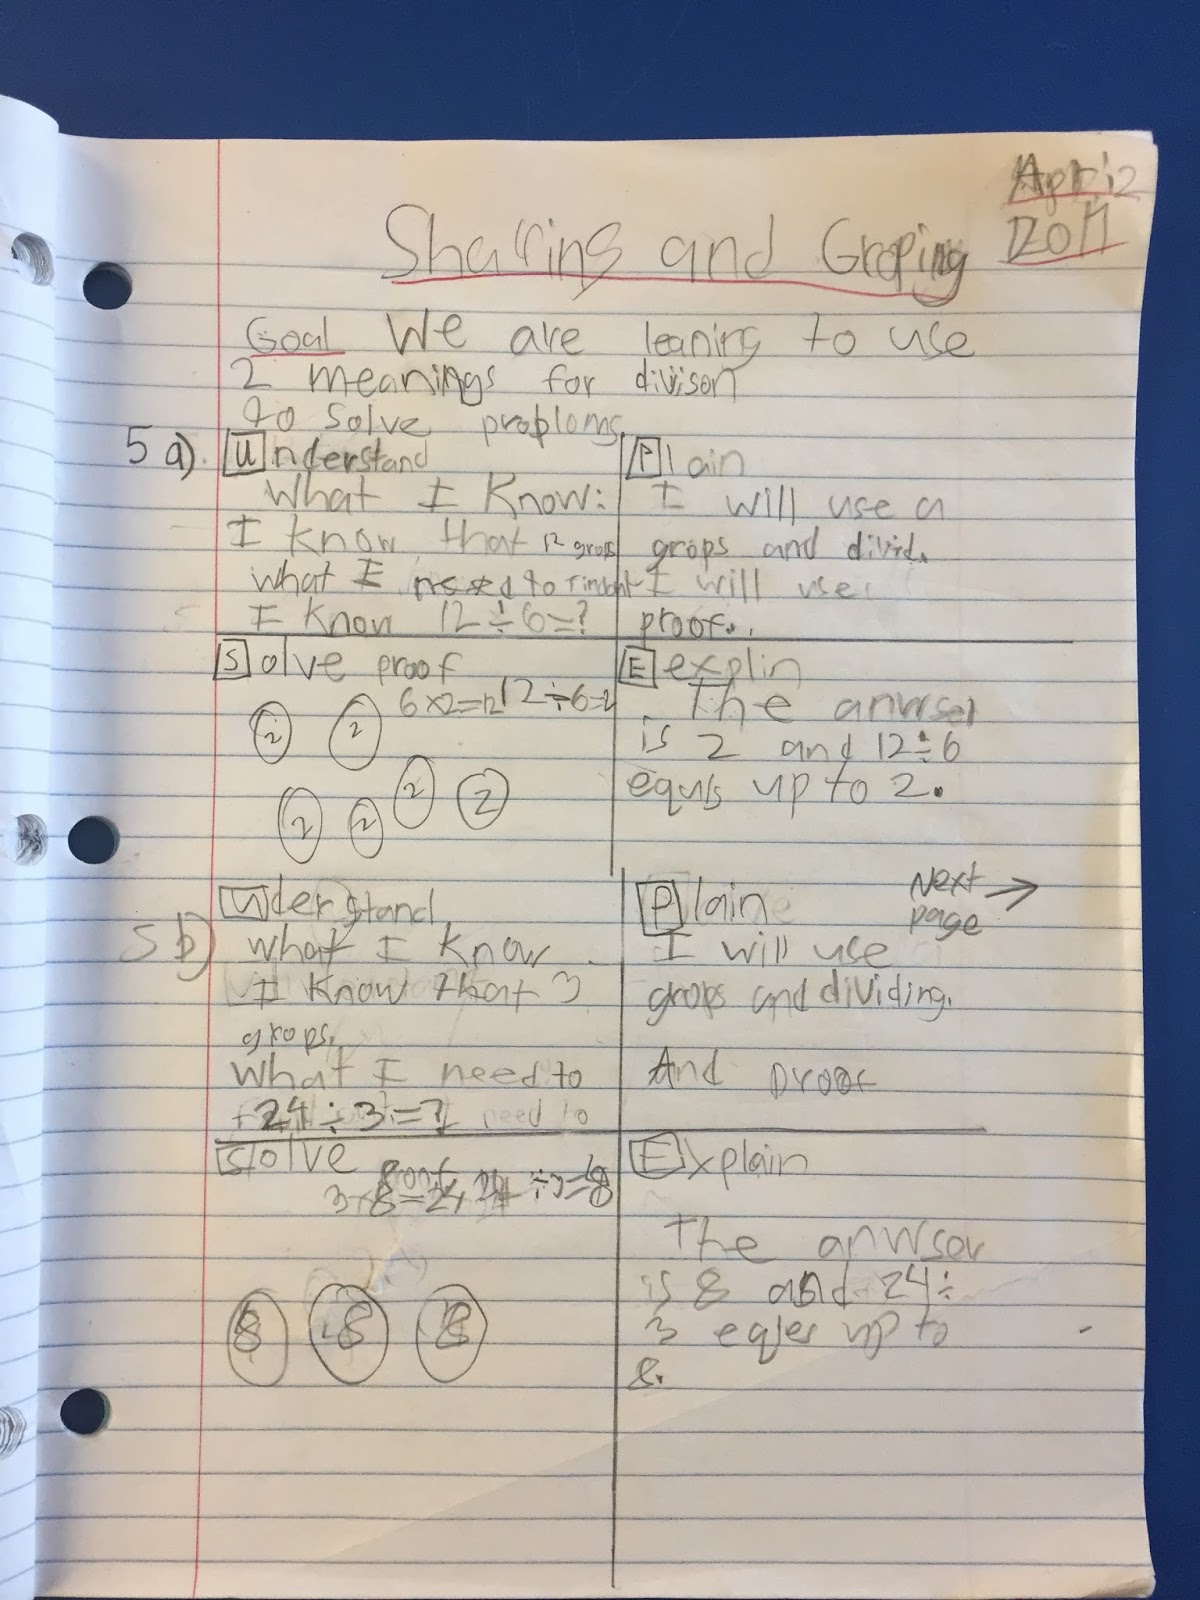 April 12
2017
Sharing and Groping
Goal We are leaning to use
2 meanings for divison
to solve problems
5 a). Understand
What I know:
I know that 12 grops
what I need to
I know 12÷6=?
Plain
I will use a
grops and divid.
I will use
proof..
Solve proof
6×2=12 12÷6=2
2 2
2 2 2 2
E explin
The anwser
is 2 and 12÷6
equls up to 2.
5 b) Understand
What I know
I know that 3
grops.
What I need to
24÷3=? need to
Plain
Next →
page
I will use
grops and dividing.
And proof
Solve
proof
3×8=24 24÷3=8
8 8 8
Explain
The anwser
is 8 and 24÷
3 eqles up to
8.